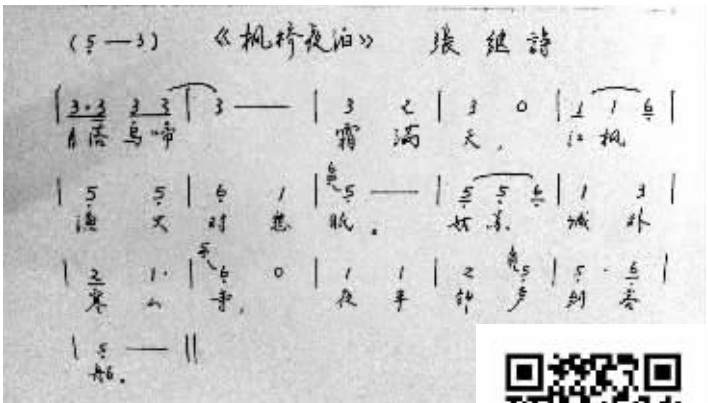 (5̣ — 3) 《枫桥夜泊》 張 继 詩
| 3·3 3 3 | 3 — | 3 2 | 3 0 | 1 1 6̣ |
月落烏啼 霜 满 天, 江 枫
| 5̣ 5̣ | 6̣ 1 | 6̣ 5̣ — | 5̣ 5̣ 6̣ | 1 3 |
渔 火 对 愁 眠。 姑 苏 城 外
| 2 1· | 5̣ 6̣ 0 | 1 1 | 2 6̣ 5̣ | 5̣· 6̣ |
寒 山 寺, 夜 半 钟 声 到 客
| 5̣ — ||
船。